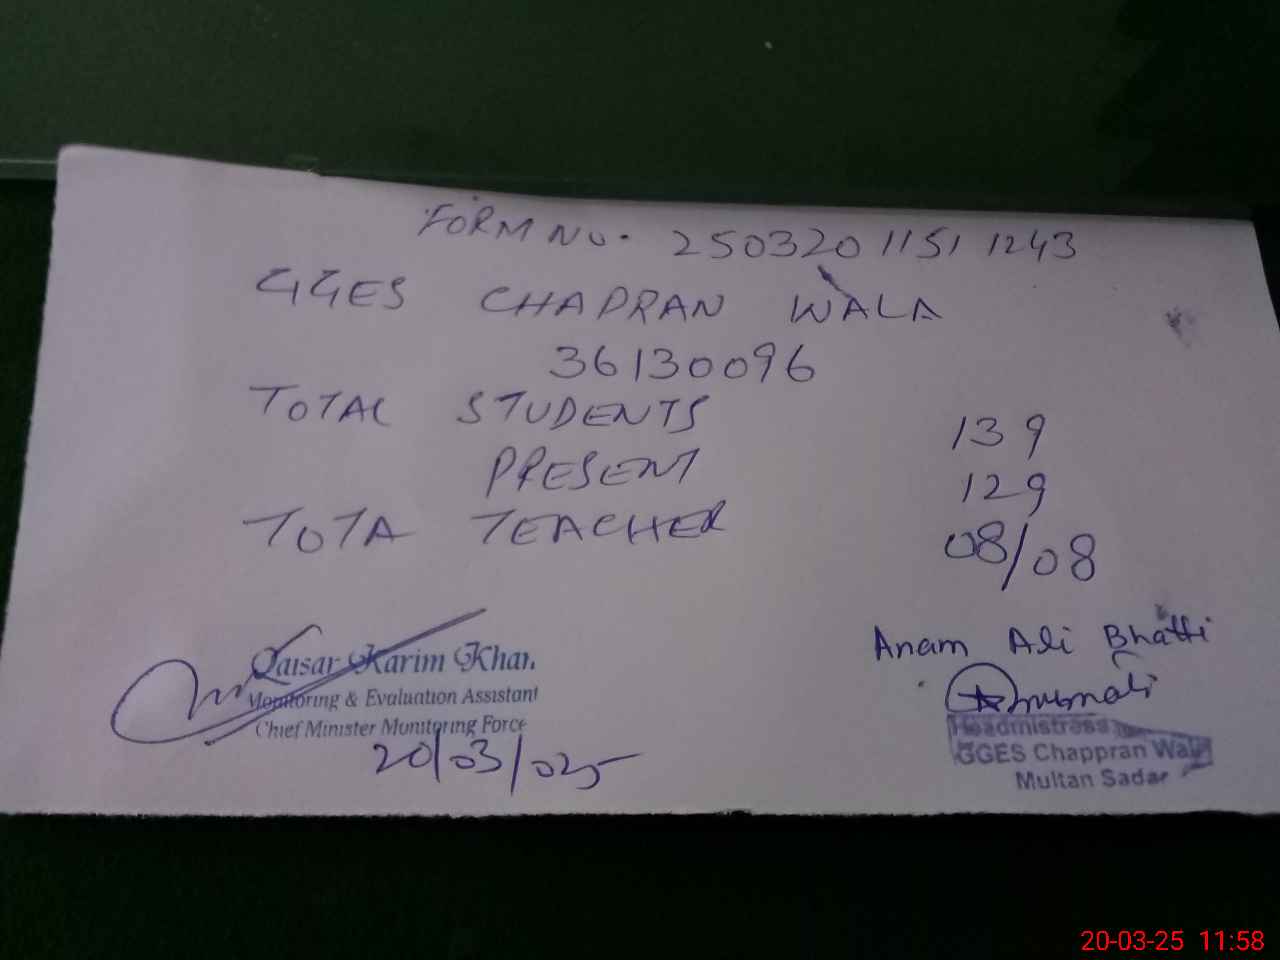 FORM NO. 2503201151 1243
GGES CHAPRAN WALA
36130096
TOTAL STUDENTS 139
PRESENT 129
TOTA TEACHER 08/08
Qaisar Karim Khan
Monitoring & Evaluation Assistant
Chief Minister Monitoring Force
20/03/025
Anam Ali Bhatti
Headmistress
GGES Chappran Wala
Multan Sadar
20-03-25 11:58